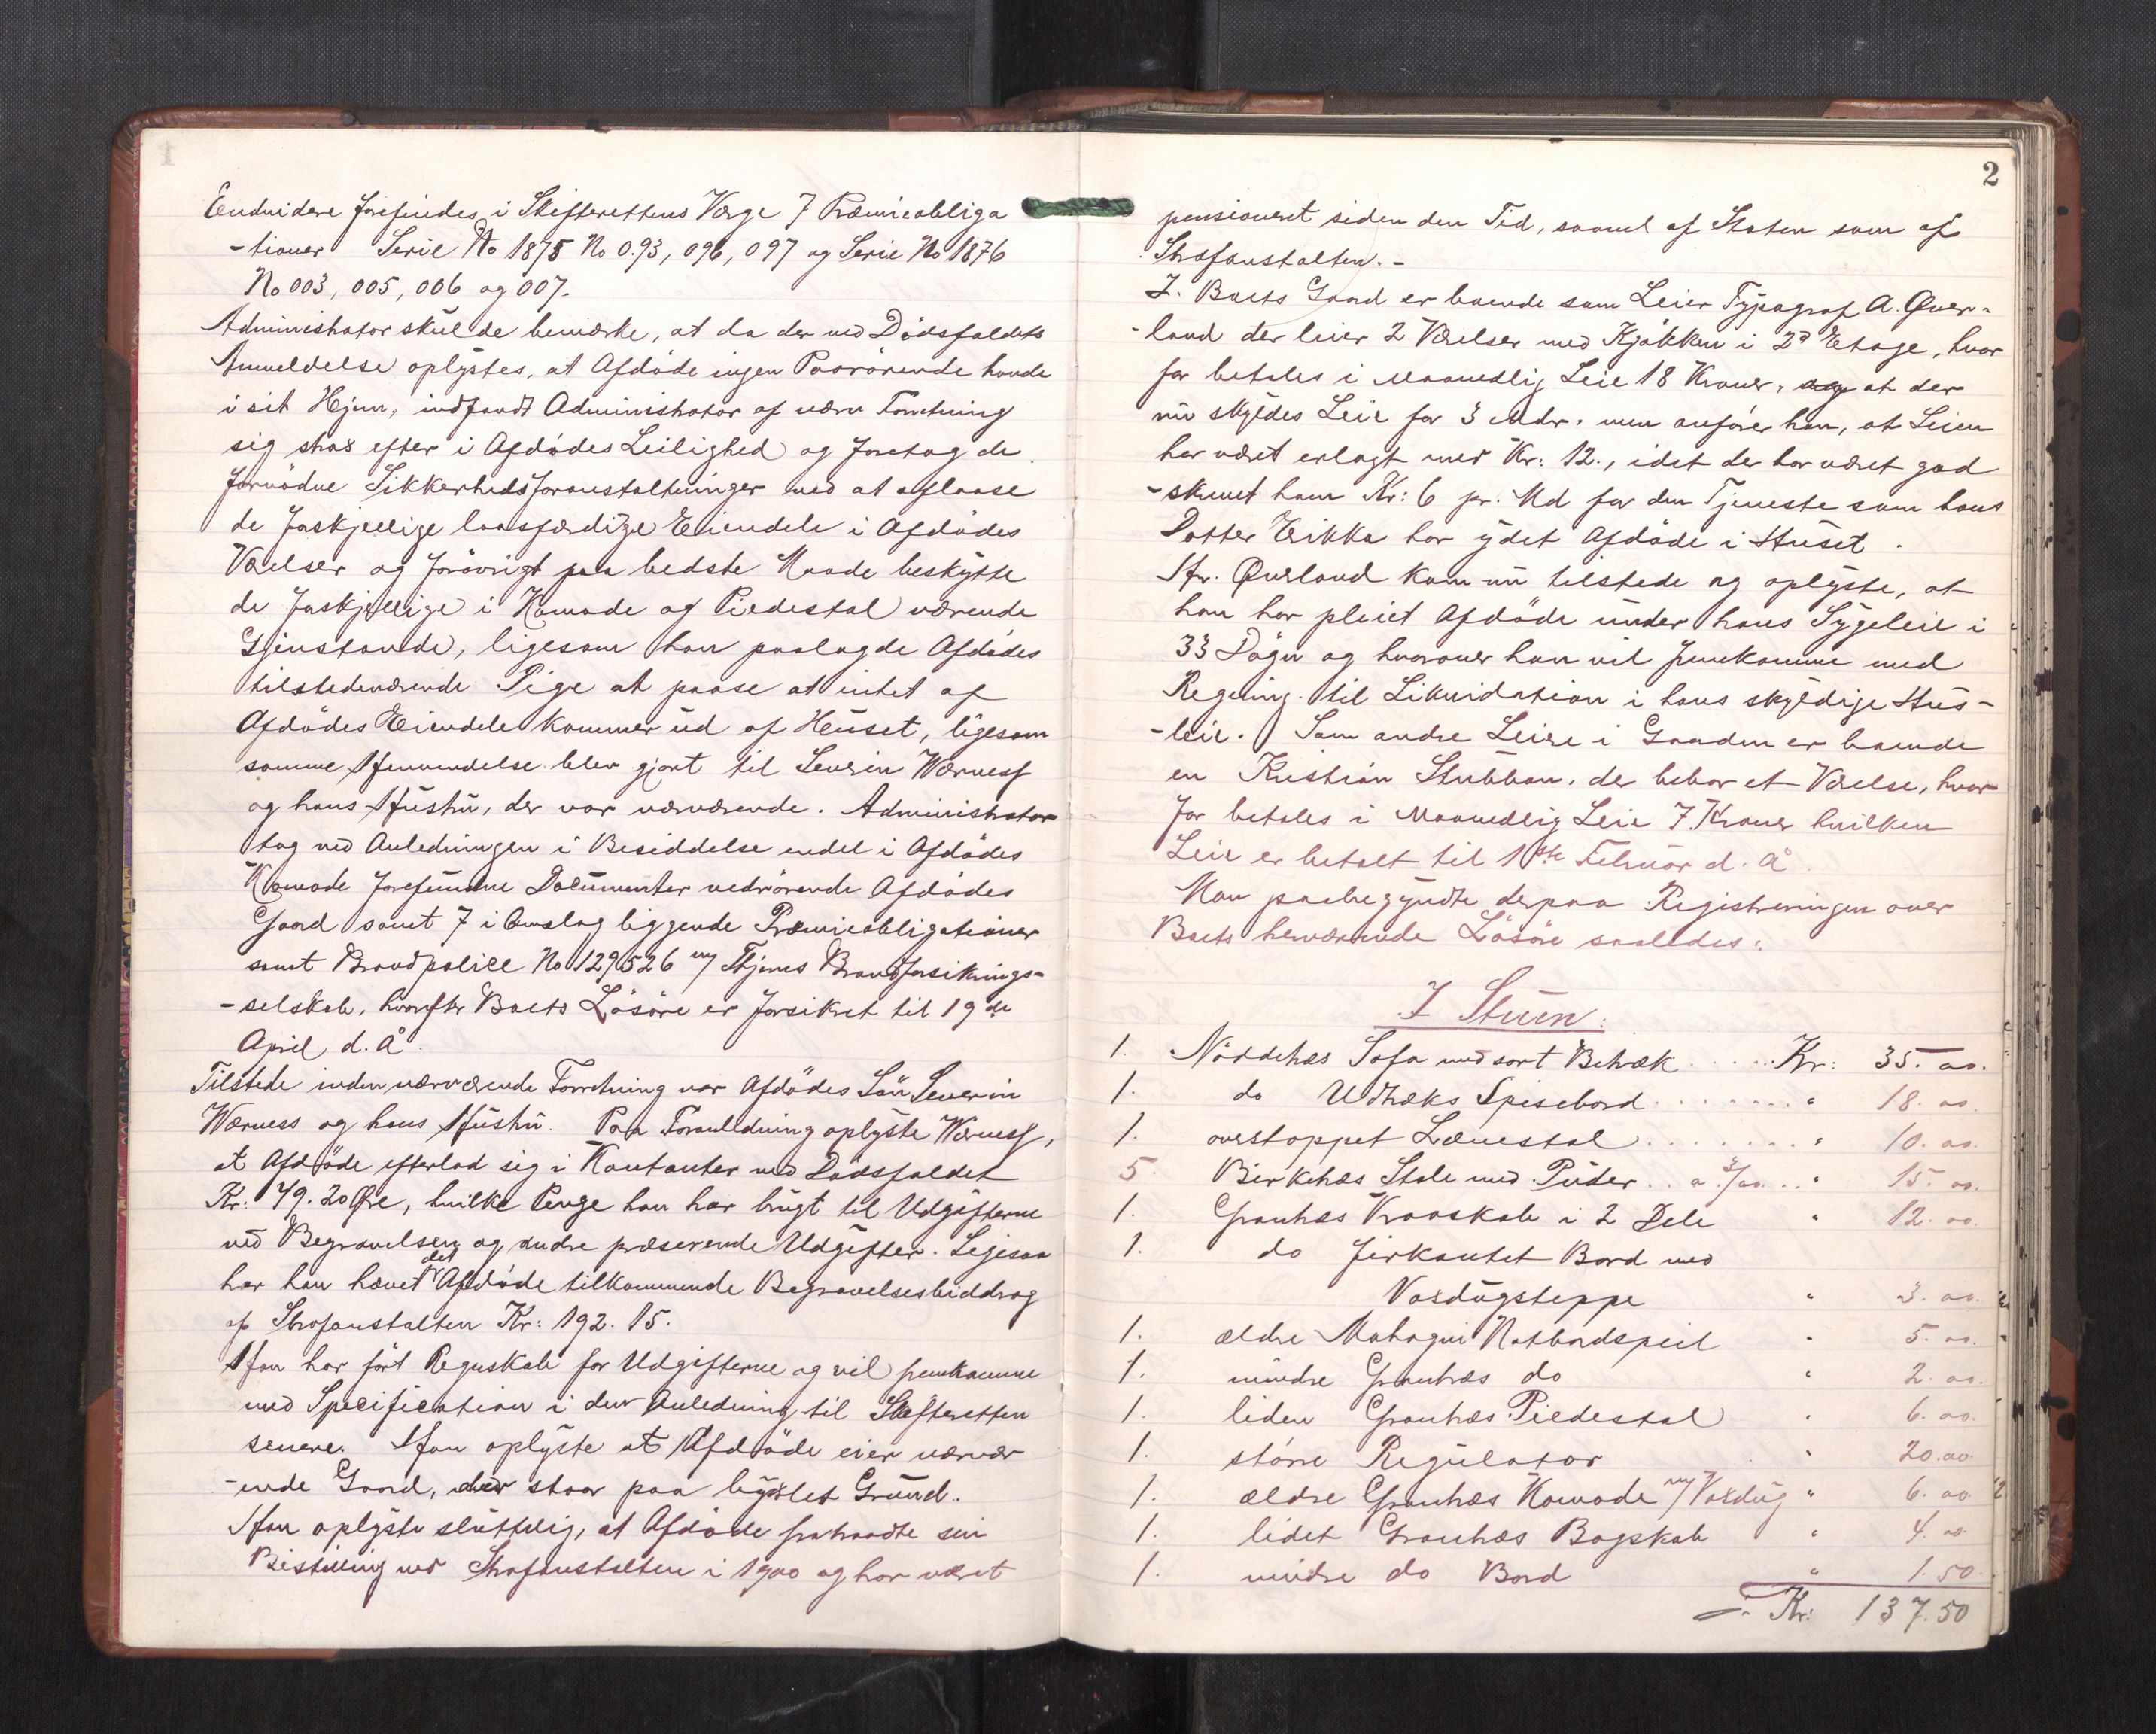 1
Endvidere forefindes i Skifterettens Værge 7 Præmieobliga
-tioner Serie No 1875 No 093, 096, 097 og Serie No 1876
No 003, 005, 006 og 007.
Administrator skulde bemærke, at da der ved Dödsfaldets
Anmeldelse oplystes, at Afdöde ingen Paarörende havde
i sit Hjem, indfandt Administrator af nærv Forretning
sig strax efter i Afdödes Leilighed og foretog de
fornödne Sikkerhedsforanstaltninger med at aflaase
de forskjellige laasfærdige Eiendele i Afdödes
Værelser og forövrigt paa bedste Maade beskytte
de forskjellige i Komode og Piedestal værende
Gjenstande, ligesom han paalagde Afdödes
tilstedeværende Pige at paase at intet af
Afdödes Eiendele kommer ud af Huset, ligesom
samme Henvendelse blev gjort til Severin Værness
og hans Hustru, der var nærværende. Administrator
tog ved Anledningen i Besiddelse endel i Afdödes
Komode forefundne Documenter vedrörende Afdödes
Gaard samt 7 i Omslag liggende Præmieobligationer
samt Brandpolice No 129526 m/ Thjems Brandforsikrings-
-selskab, hvorefter Boets Lösöre er forsikret til 19de
April d. Å.
Tilstede inden nærværende Forretning var Afdödes Sön Severin
Wærness og hans Hustru. Paa Foranledning oplyste Wærness,
at Afdöde efterlod sig i Kontanter ved Dödsfaldet
Kr. 79. 20 Øre, hvilke Penge han har brugt til Udgifterne
ved Begravelsen og andre præserende Udgifter. Ligesaa
har han hævet det Afdöde tilkommende Begravelsesbiddrag
af Strafanstalten Kr: 192. 15.
Han har fört Regnskab for Udgifterne og vil fremkomme
med Specification i den Anledning til Skifteretten
senere. Han oplyste at Afdöde eier nærvær
-ende Gaard, der staar paa bygslet Grund.
Han oplyste sluttelig, at Afdöde fratraadte sin
Bestilling ved Strafanstalten i 1900 og har været
2
pensioneret siden den Tid, saavel af Staten som af
Strafanstalten. -
I Boets Gaard er boende som Leier Typograf A. Øver-
-land der leier 2 Værelser med Kjökken i 2d Etage, hvor
for betales i Maanedlig Leie 18 Kroner, at der
nu skyldes Leie for 3 Mdr. men anförer han, at Leien
har været erlagt med Kr: 12., idet der har været god
-skrevet ham Kr: 6 pr. Md for den Tjeneste som hans
Datter Erikka har ydet Afdöde i Huset.
Hr. Øverland kom nu tilstede og oplyste, at
han har pleiet Afdöde under hans Sygeleie i
33 Dögn og hvorover han vil fremkomme med
Regning til Likvidation i hans skyldige Hus-
-leie. Som andre Leiere i Gaarden er boende
en Kristian Stubban, der bebor et Værelse, hvor
for betales i Maanedlig Leie 7. Kroner hvilken
Leie er betalt til 1ste Februar d. Å.
Man paabegyndte derpaa Registreringen over
Boets henværende Lösöre saaledes:
I Stuen:
1. Nöddetræs Sofa med sort Betræk . . . . . Kr: 35. oo.
1. do Udtræks Spisebord . . . . . . . " 18. oo.
1. overstoppet Lænestol . . . . . . . " 10. oo.
5. Birketræs Stole med Puder . . a 3/oo . . " 15. oo.
1. Grantræs Kraaskab i 2 Dele " 12. oo.
1. do firkantet Bord med
Voxdugsteppe " 3. oo.
1. ældre Mahogni Natbordspeil " 5. oo.
1. mindre Grantræs do " 2. oo.
1. liden Grantræs Piedestal " 6. oo.
1. större Regulator " 20. oo
1. ældre Grantræs Komode m/ Voxdug " 6. oo
1. lidet Grantræs Bogskab " 4. oo.
1. mindre do Bord " 1. 50
Kr: 137. 50